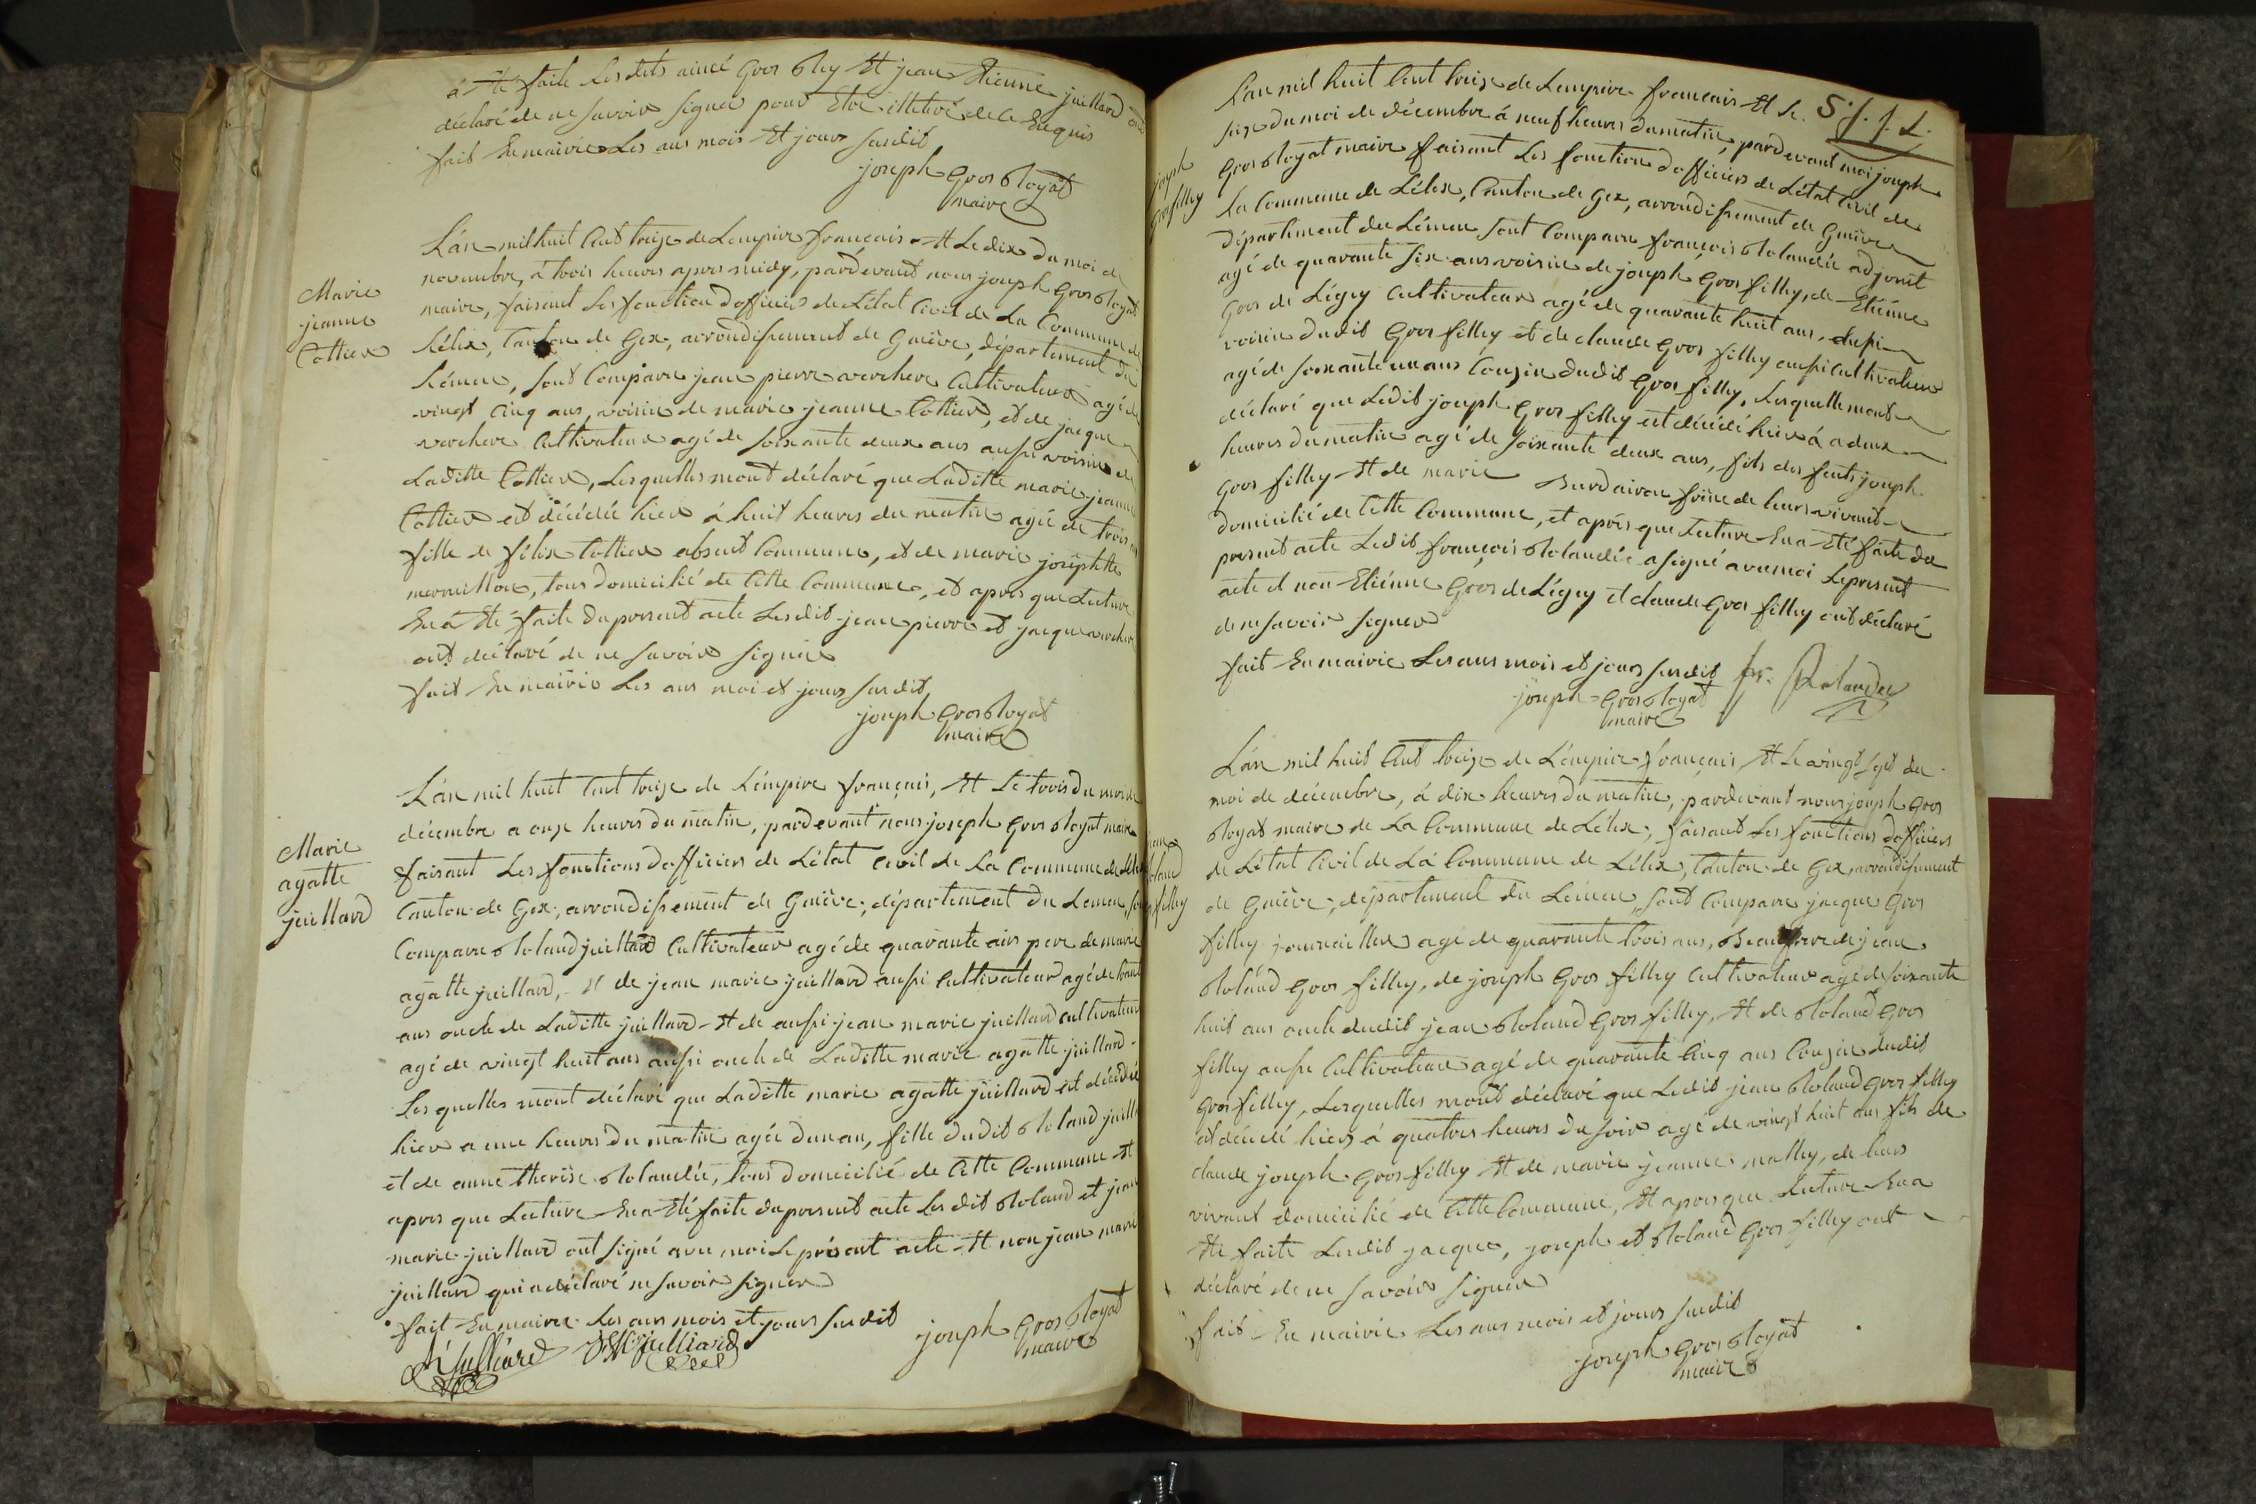 a Eté faite les dits aimé Gros Oley Et jean Etienne juillard ont
déclaré de ne savoir signer pour Etre illitéré de ce Enquis
fait En mairie Les ans mois Et jours susdits
joseph Gros Royat
maire
Marie
jeanne
Cottier
L'án mil huit Cent treize de L'empire français Et Le dix du moi de
novembre, á trois heures apres midy, pardevant nous joseph Gros Royat
maire, faisant Les fonction d'officiers de L'état Civil de La Commune de
Lélex, Canton de Gex, arrondissement de Genève, département du
Léman, sont Comparu jean pierre verchere Cultivateur agé de
vingt Cinq ans, voisin de marie jeanne Cottier, et de jacque
verchere Cultivateur agé de soixante deux ans aussi voisin de
Laditte Cottier, Lesquelles mont déclaré que Laditte marie jeanne
Cottier est décédée hier á huit heures du matin agée de trois ans
fille de félix Cottier absent Commune, et de marie joséphte
mermillon, tous domicilié de Cette Commune, et apres que Lecture
En a Eté faite du present acte Lesdit jean pierre et jacque verchere
ont déclaré de ne savoir signer
fait En mairie Les ans moi et jours susdit
joseph Gros Royat
maire
Marie
agatte
juillard
L'án mil huit Cent treize de L'émpire français, Et Le trois du mois de
décembre a onze heures du matin, pardevant nous joseph Gros Royat maire
faisant Les fonctions d'officiers de L'état Civil de La Commune de Lélex
Canton de Gex, arrondissement de Genève, département du Leman, sont
Comparu Roland juillard Cultivateur agé de quarante ans pere de marie
agatte juillard, Et de jean marie juillard aussi Cultivateur agé de trante
ans oncle de Laditte juillard Et de aussi jean marie juillard cultivateur
agé de vingt huit ans aussi oncle de Laditte marie agatte juillard
Lesquelles mont déclaré que Laditte marie agatte juillard est décédée
hier a une heures du matin agée dunan, fille dudit Roland juillard
et de anne therese Rolandée, tous domicilié de Cette Commune Et
apres que Lecture En a Eté faite du present acte Lesdit Roland et jean
marie juillard ont signé avec moi Le présent acte Et non jean marie
juillard qui a déclaré ne savoir signer
fait En mairie Les ans mois et jours susdit
joseph Gros Royat
maire
R Julliard JM Julliard
S. J. J. L.
joseph
Gros filley
L'án mil huit Cent treize de L'empire français Et Le
six du moi de décembre á neuf heures du matin, pardevant moi joseph
Gros Royat maire faisant Les fonction d'officiers de L'état Civil de
La Commune de Lélex, Canton de Gex, arrondissement de Genève
département du Léman sont Comparu françois Rolandée adjoint
agé de quarante six ans voisin de joseph Gros filley, de Etiénne
Gros de Légey Cultivateur agé de quarante huit ans, aussi
voisin dudit Gros filley et de claude Gros filley aussi Cultivateur
agé de soixante un ans Couzin dudit Gros filley, Lesquelle mont
déclaré que Ledit joseph Gros filley est décédé hier á a deux
heures du matin agé de soixante deux ans, fils des feuts joseph
Gros filley Et de marie de leurs vivant
domicilié de Cette Commune, et aprés que Lecture En a Eté faite du
present acte Ledit françois Rolandée a signé avec moi Le present
acte et non Etiénne Gros de Légey et claude Gros filley ont déclaré
de ne savoir signer
fait En mairie Les ans mois et jours susdit fr. Rolandez
joseph Gros Royat
maire
jean
Roland
Gros filley
L'án mil huit Cent treize de L'émpire français Et Le vingt sept du
moi de décembre, á dix heures du matin, pardevant nous joseph Gros
Royat maire de La Commune de Lélex, faisant Les fonctions d'officiers
de L'état Civil de La Commune de Lélex, Canton de Gex, arrondissement
de Genève, département du Léman, sont Comparu jacque Gros
filley journaillier agé de quarante trois ans, Beau frere de jean
Roland Gros filley, de joseph Gros filley Cultivateur agé de soixante
huit ans oncle dudit jean Roland Gros filley, Et de Roland Gros
filley aussi Cultivateur agé de quarante Cinq ans Couzin dudit
Gros filley, Lesquelles mont déclaré que Ledit jean Roland Gros filley
est décédé hier á quatres heures du soir agé de vingt huit ans fils de
claude joseph Gros filley Et de marie jeanne malley, de leurs
vivant domicilié de Cette Commune, Et apres que Lecture En a
Eté faite Lesdit jacque, joseph et Roland Gros filley ont
déclaré de ne savoir signer
fait En mairie Les ans mois et jours susdit
joseph Gros Royat
maire